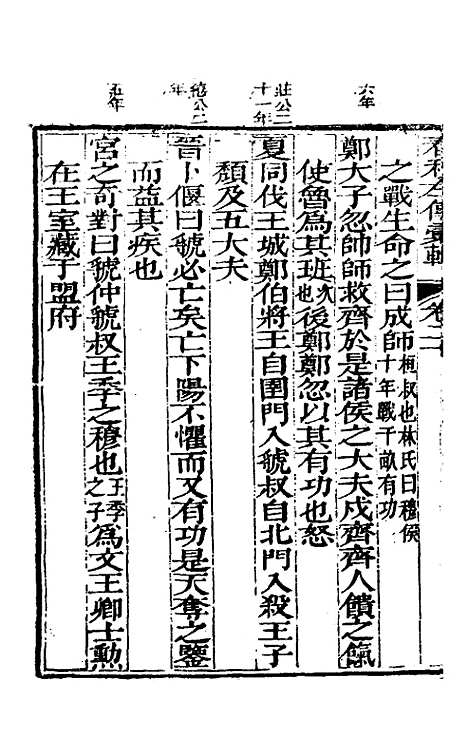 春秋左傳彙輯 卷二
之戰生命之曰成師桓叔也林氏曰穆侯十年戰千畝有功
六年
鄭大子忽帥師救齊於是諸侯之大夫戍齊齊人饋之餼
使魯為其班次也後鄭鄭忽以其有功也怒
莊公二十一年
夏同伐王城鄭伯將王自圉門入虢叔自北門入殺王子
頹及五大夫
僖公二年
晉卜偃曰虢必亡矣亡下陽不懼而又有功是天奪之鑒
而益其疾也
五年
宮之奇對曰虢仲虢叔王季之穆也王季之子為文王卿士勳
在王室藏于盟府